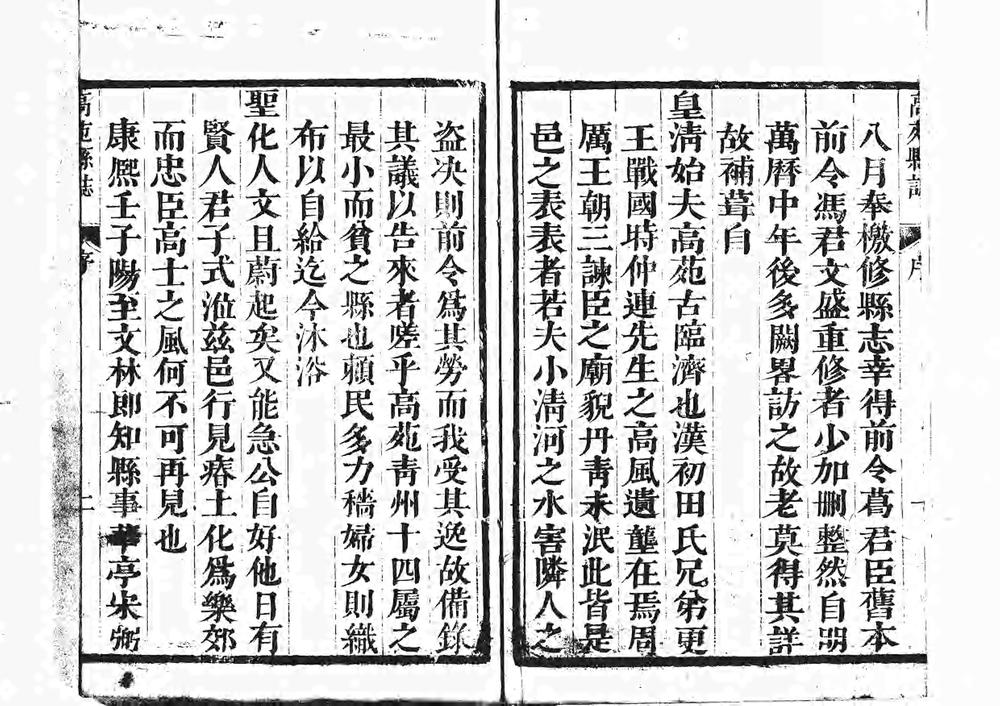 高苑縣誌
序
一
八月奉檄修縣志幸得前令葛君臣舊本
前令馮君文盛重修者少加删整然自明
萬曆中年後多闕畧訪之故老莫得其詳
故補葺自
皇清始夫高苑古臨濟也漢初田氏兄弟更
王戰國時仲連先生之高風遺壟在焉周
厲王朝三諫臣之廟貌丹靑未泯此皆是
邑之表表者若夫小清河之水害隣人之
盗决則前令爲其勞而我受其逸故備錄
其議以告來者嗟乎高苑靑州十四屬之
最小而貧之縣也賴民多力穡婦女則織
布以自給迄今沐浴
聖化人文且蔚起矣又能急公自好他日有
賢人君子式涖兹邑行見瘠土化爲樂郊
而忠臣高士之風何不可再見也
康熈壬子陽至文林郎知縣事華亭宋弼
高苑縣誌
序
二